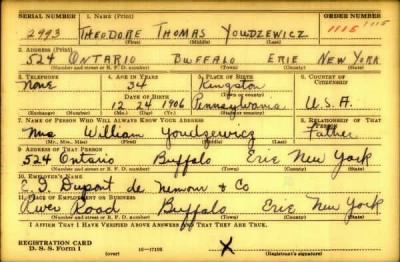 SERIAL NUMBER 1. NAME (Print) ORDER NUMBER
2993 THEODORE THOMAS YOUDZEWICZ 1115 1115
(First) (Middle) (Last)
2. ADDRESS (Print)
524 ONTARIO BUFFALO ERIE NEW YORK
(Number and street or R. F. D. number) (Town) (County) (State)
3. TELEPHONE 4. AGE IN YEARS 5. PLACE OF BIRTH 6. COUNTRY OF CITIZENSHIP
None 34 Kingston
DATE OF BIRTH
12 24 1906 Pennsylvania U.S.A.
(Exchange) (Number) (Mo.) (Day) (Yr.) (State or country)
7. NAME OF PERSON WHO WILL ALWAYS KNOW YOUR ADDRESS 8. RELATIONSHIP OF THAT PERSON
William Youdzewicz Father
(Mr., Mrs., Miss) (First) (Middle) (Last)
9. ADDRESS OF THAT PERSON
524 Ontario Buffalo Erie New York
(Number and street or R. F. D. number) (Town) (County) (State)
10. EMPLOYER'S NAME
E. I. Dupont de Nemour & Co
11. PLACE OF EMPLOYMENT OR BUSINESS
River Road Buffalo Erie New York
(Number and street or R. F. D. number) (Town) (County) (State)
I AFFIRM THAT I HAVE VERIFIED ABOVE ANSWERS AND THAT THEY ARE TRUE.
REGISTRATION CARD
D. S. S. Form 1 (over) 16—17105 X (Registrant's signature)